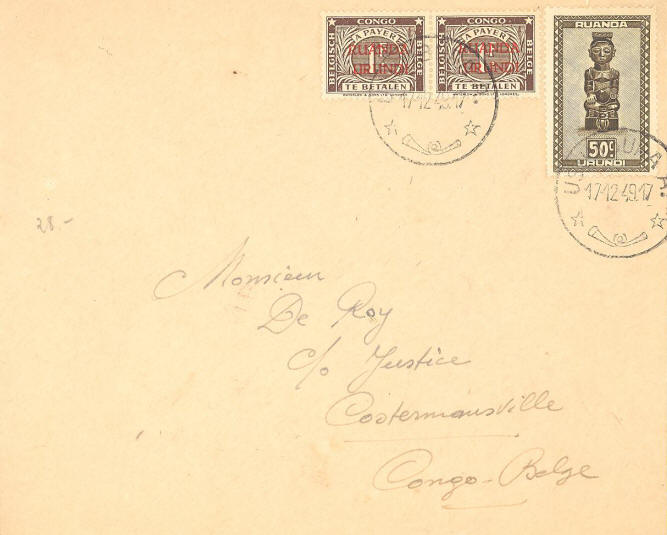 CONGO
BELGISCH
A PAYER
BELGE
RUANDA
URUNDI
TE BETALEN
CONGO
BELGISCH
A PAYER
BELGE
RUANDA
URUNDI
TE BETALEN
RUANDA
50c
URUNDI
17-12 49.17
17-12 49.17
28.-
Monsieur
De Roy
c/o Justice
Costermansville
Congo-Belge